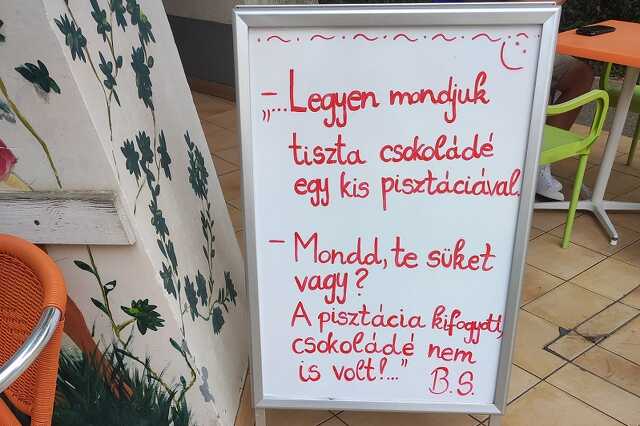 – „...Legyen mondjuk
tiszta csokoládé
egy kis pisztáciával.
– Mondd, te süket
vagy?
A pisztácia kifogyott,
csokoládé nem
is volt!..."
B.S.